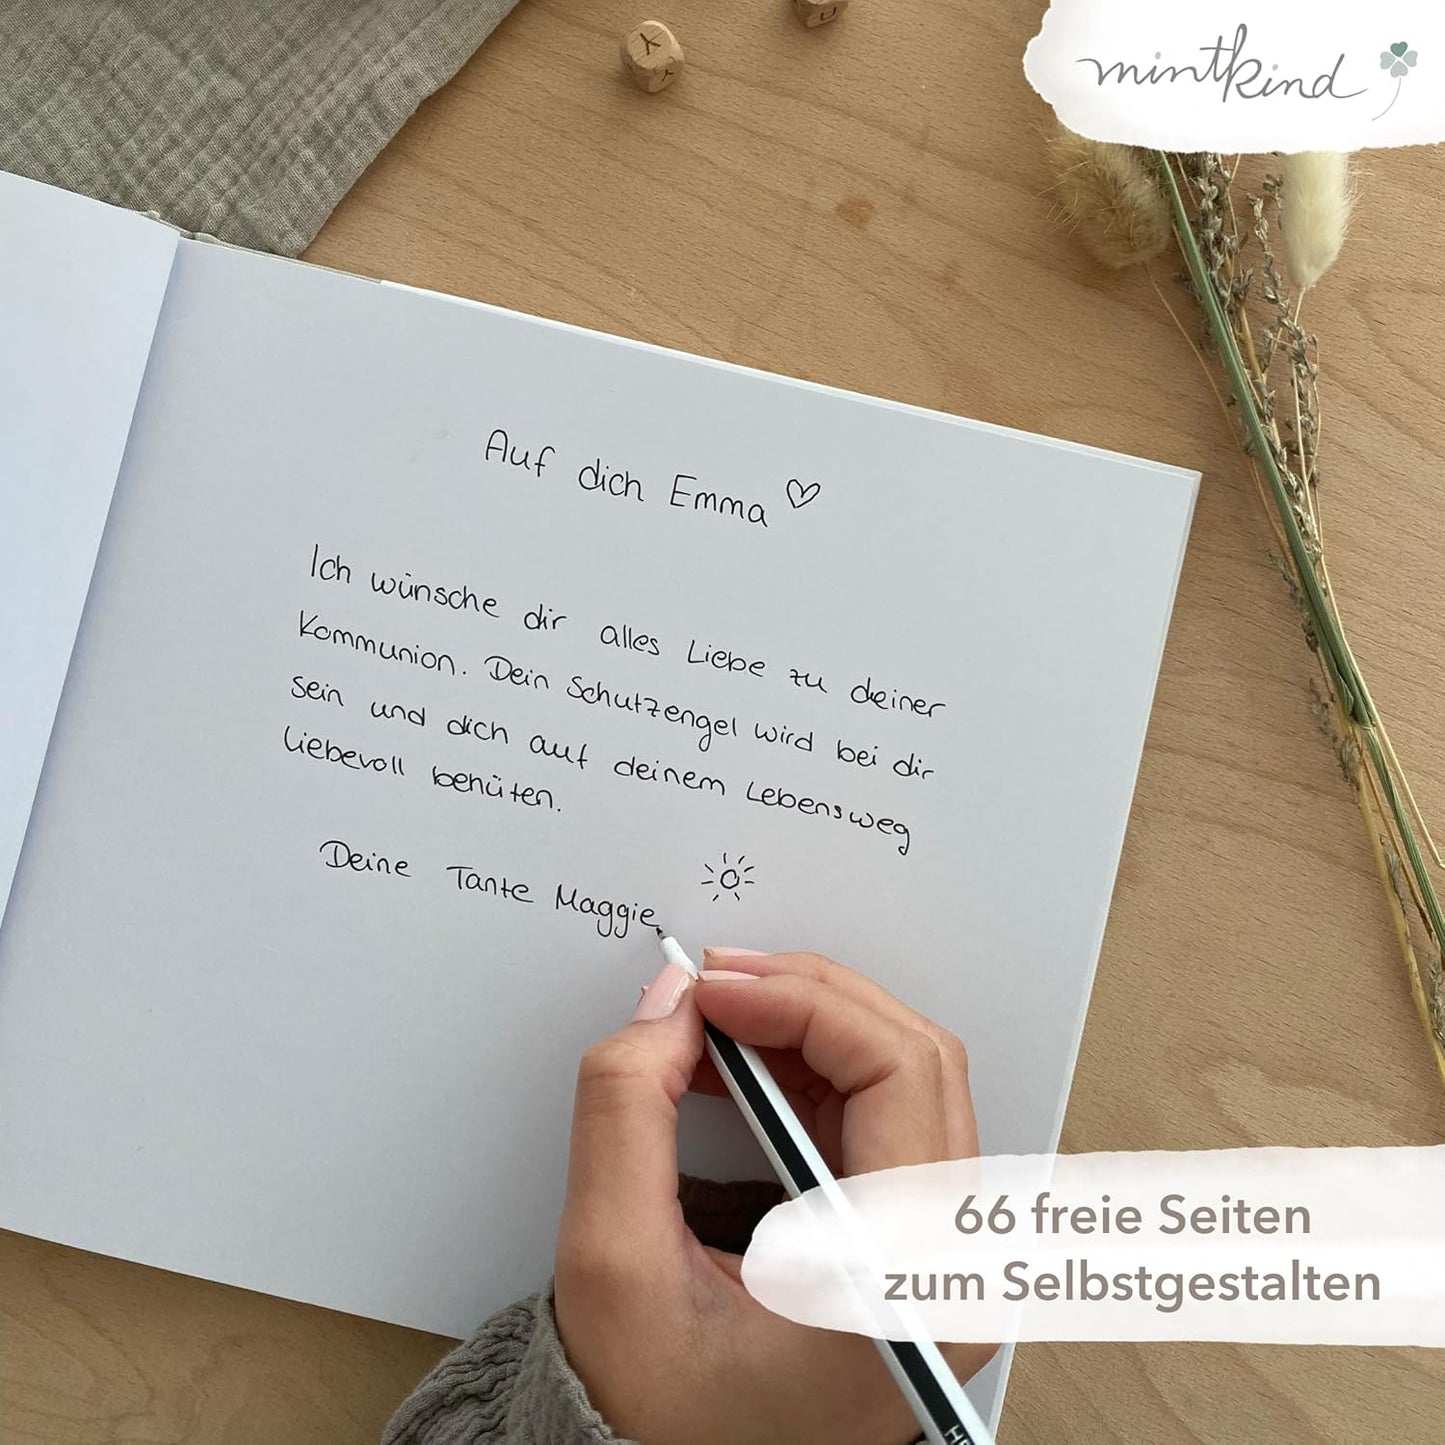 mintkind
Auf dich Emma ♡
Ich wünsche dir alles Liebe zu deiner
Kommunion. Dein Schutzengel wird bei dir
sein und dich auf deinem Lebensweg
liebevoll behüten.
Deine Tante Maggie
66 freie Seiten
zum Selbstgestalten